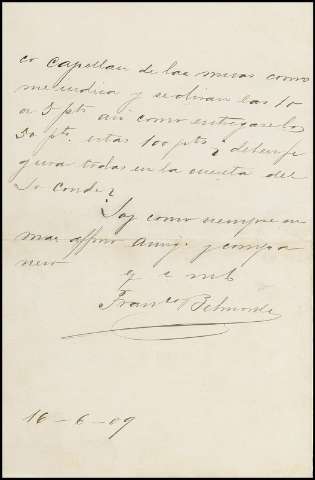 co capellan de las minas como
me indica y se diran las 10
a 5 pts asi como entregase los
50 pts. estas 100 pts ¿ deben fi
gurar todas en la cuenta del
Sr Conde?
Soy como siempre su
mas affmo amigo y compa
nero
q e m b
Franco Belmonte
16-6-09